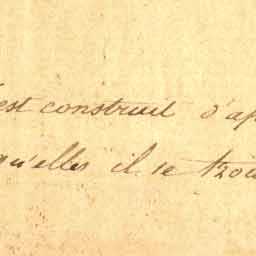 est construit d'ap
qu'elles il se trou